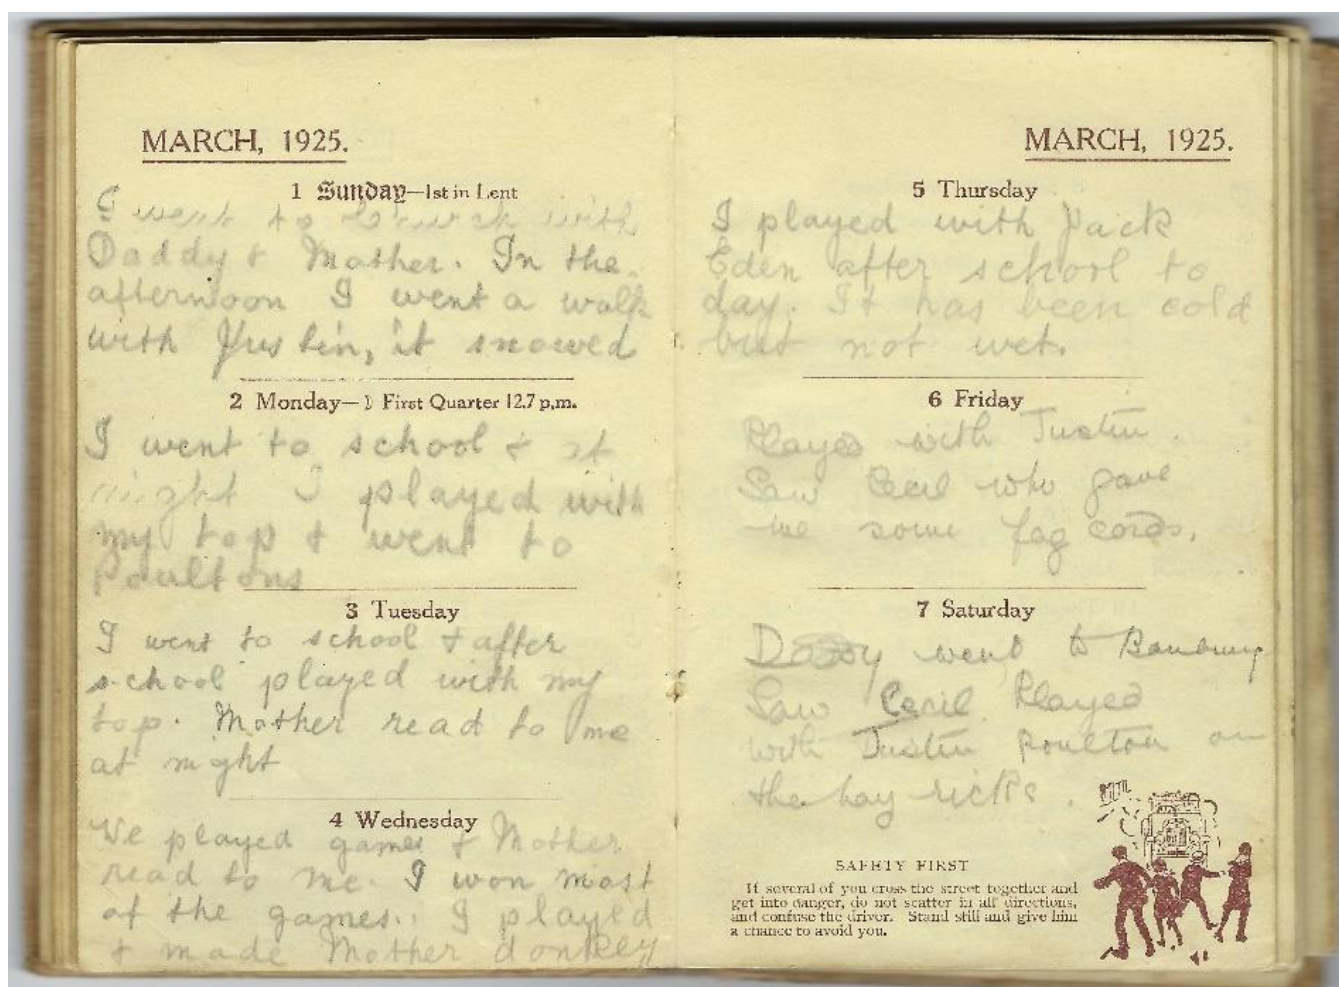 MARCH, 1925.
1 Sunday—1st in Lent
I went to church with
Daddy & Mother. In the
afternoon I went a walk
with Justin, it snowed
2 Monday—☽ First Quarter 12.7 p.m.
I went to school & at
night I played with
my top & went to
Poultons
3 Tuesday
I went to school & after
school played with my
top. Mother read to me
at night
4 Wednesday
We played games & Mother
read to me. I won most
of the games. I played
& made Mother donkey
MARCH, 1925.
5 Thursday
I played with Jack
Eden after school to
day. It has been cold
but not wet.
6 Friday
Played with Justin.
Saw Cecil who gave
me some fag cards.
7 Saturday
Daddy went to Banbury
Saw Cecil. Played
with Justin Poulton on
the hay ricks.
SAFETY FIRST
If several of you cross the street together and
get into danger, do not scatter in all directions,
and confuse the driver. Stand still and give him
a chance to avoid you.